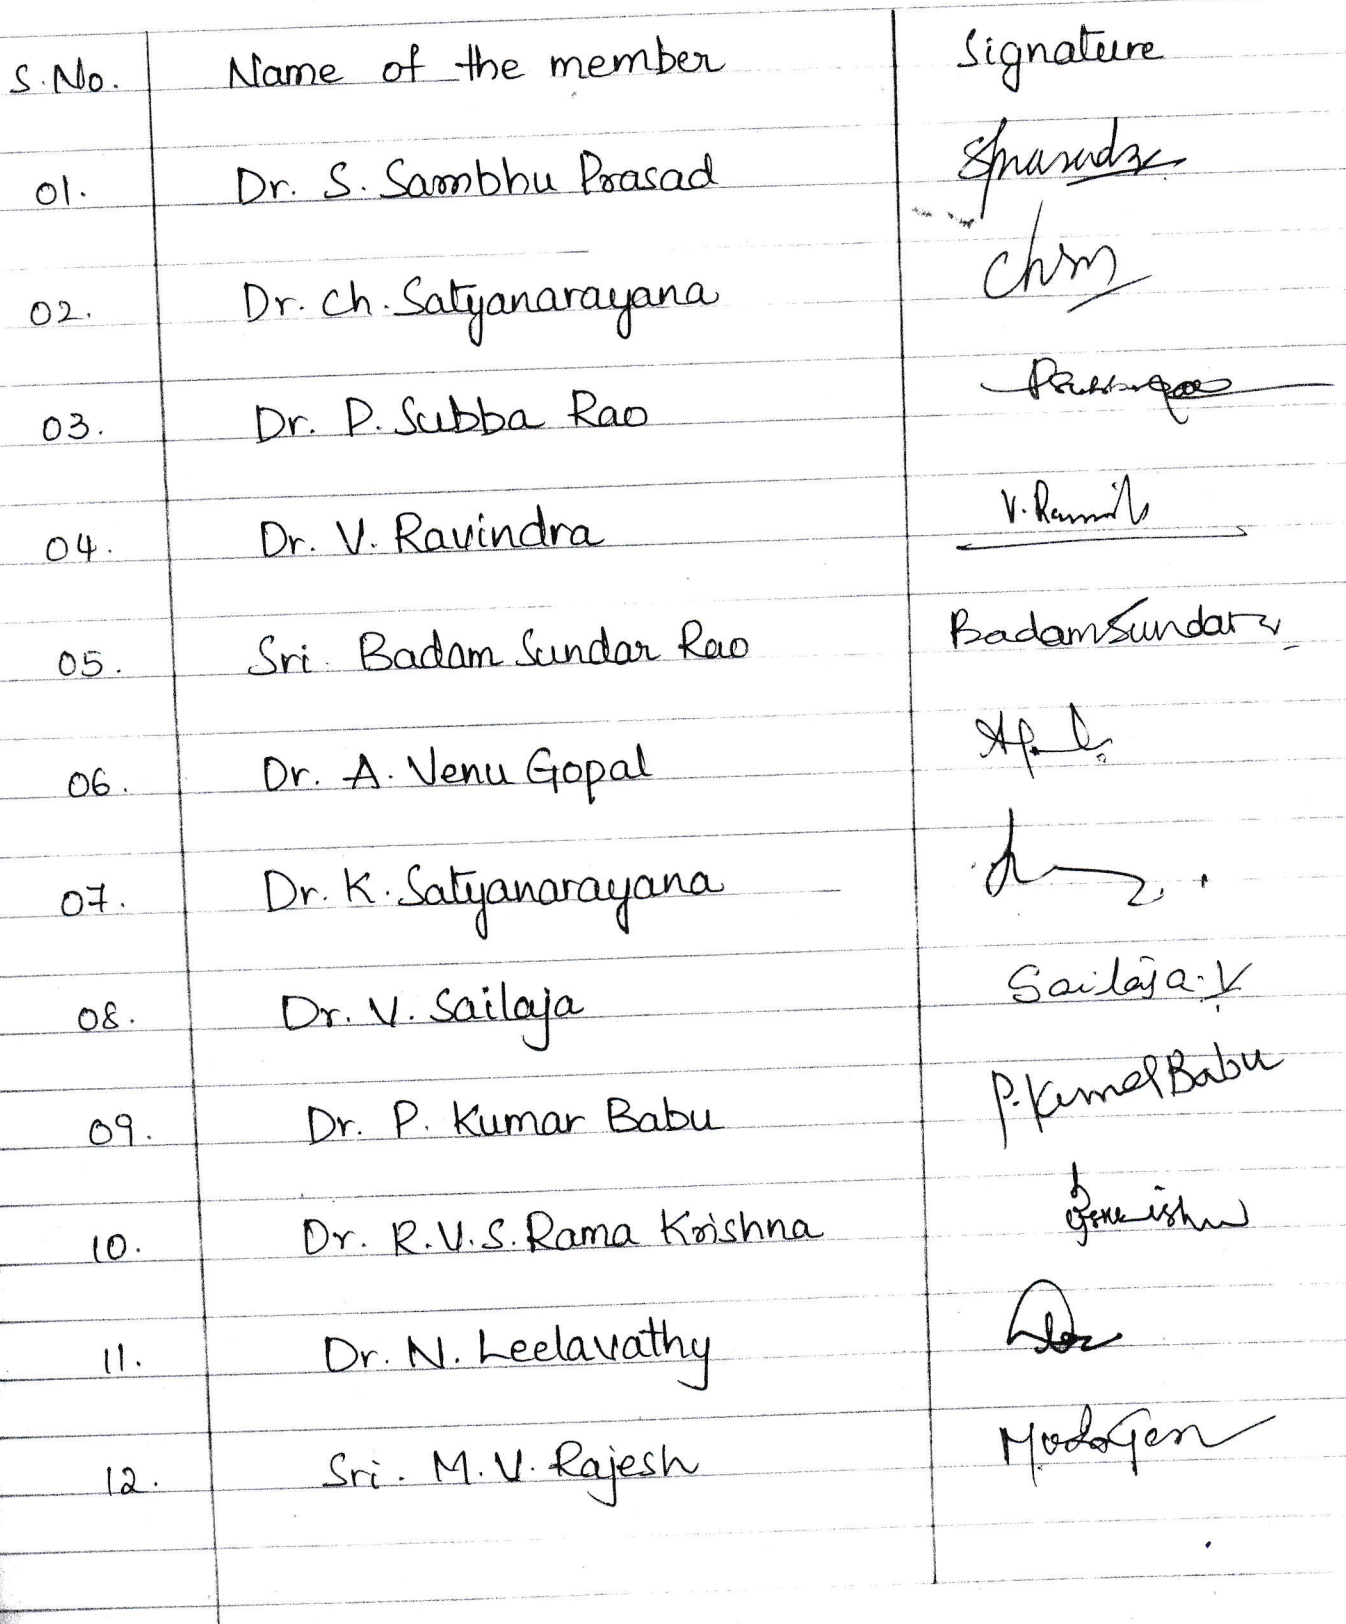 S.No. Name of the member Signature
01. Dr. S. Sambhu Prasad
02. Dr. Ch. Satyanarayana
03. Dr. P. Subba Rao
04. Dr. V. Ravindra
05. Sri. Badam Sundar Rao Badam Sundar
06. Dr. A. Venu Gopal
07. Dr. K. Satyanarayana
08. Dr. V. Sailaja Sailaja.V
09. Dr. P. Kumar Babu P. Kumar Babu
10. Dr. R.V.S. Rama Krishna
11. Dr. N. Leelavathy
12. Sri. M.V. Rajesh